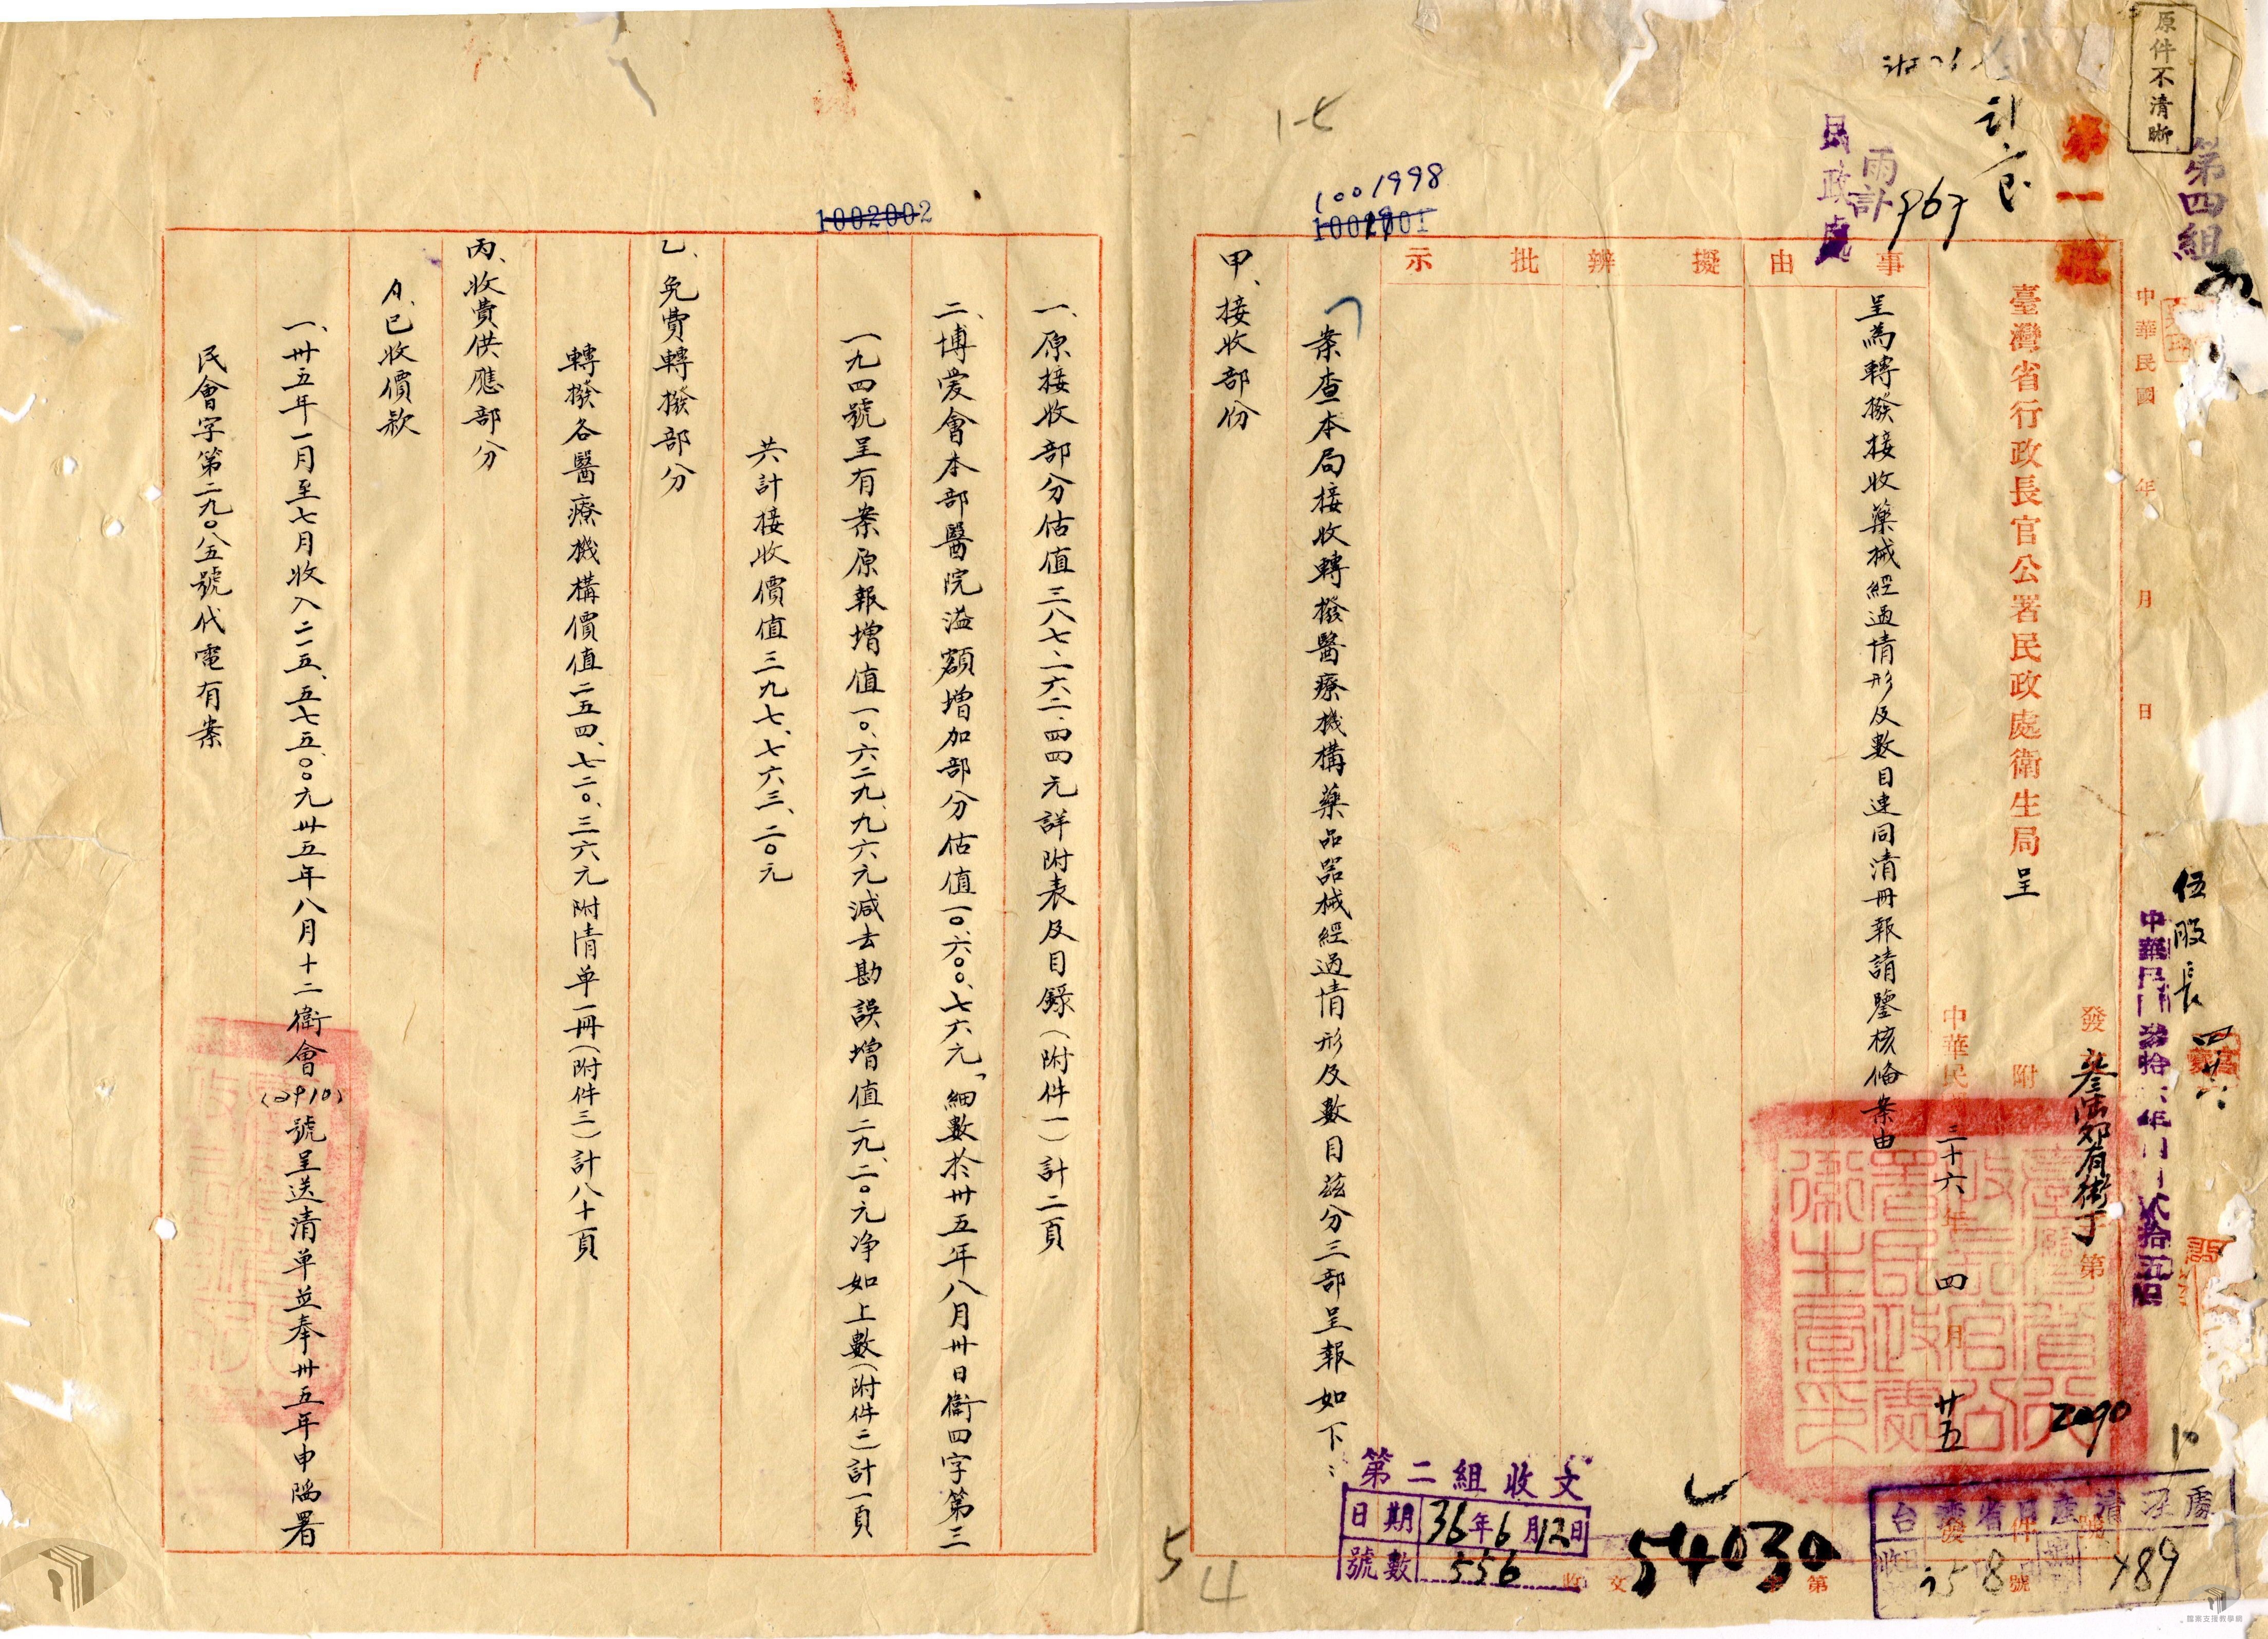 原件不清晰
第四組
第一號
中華民國 年 月 日
伍股長
臺灣省行政長官公署民政處衛生局呈
發 附 第 2090
中華民國三十六年四月廿五
民政處
雨計 967
事由
擬辦
批示
呈為轉撥接收藥械經過情形及數目連同清冊報請鑒核俻案由
1001998
案查本局接收轉撥醫療機構藥品器械經過情形及數目茲分三部呈報如下：
甲、接收部份
第二組收文
日期 36年6月12日
號數 556
收文 第
54030
489
1002002
一、原接收部分估值三八七、一六二、四四元詳附表及目錄（附件一）計二頁
二、博愛會本部醫院溢額增加部分估值一〇、六〇〇、七六元「細數於卅五年八月卅日衛四字第三
一九四號呈有案原報增值一〇、六二九、九六元減去勘誤增值二九、二〇元净如上數（附件二）計一頁
共計接收價值三九七、七六三、二〇元
乙、免費轉撥部分
轉撥各醫療機構價值二五四、七二〇、三六元附清单一冊（附件三）計八十頁
丙、收費供應部分
A、已收價款
一、卅五年一月至七月收入二一五、五七五、〇〇元卅五年八月十二衛會（2910）號呈送清单並奉卅五年申陷署
民會字第二九〇八五號代電有案
5
4
檔案支援教學網